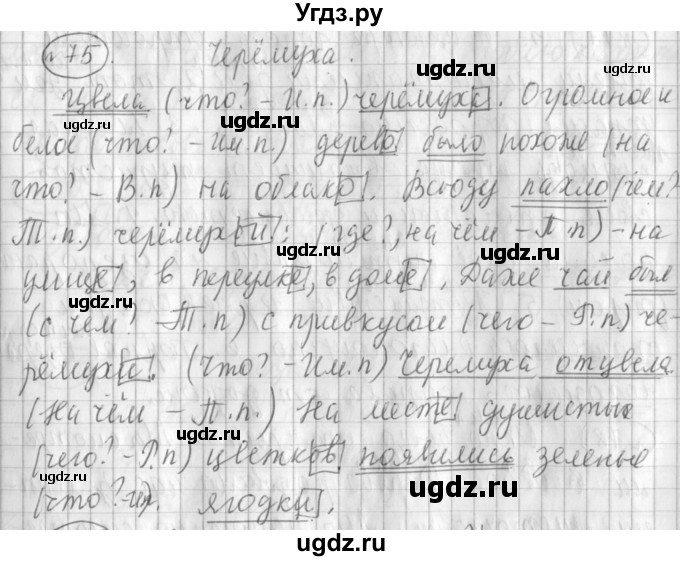 Угдз.ру
№75. Черёмуха.
Цвела (что? - И.п.) черёмуха. Огромное и
белое (что? - Им.п.) дерево было похоже (на
что? - В.п) на облако. Всюду пахло (чем?
Т.п.) черёмухой: (где?, на чём - П.п) - на
улице, в переулке, в доме. Даже чай был
(с чем? - Т.п) с привкусом (чего - Р.п.) че-
рёмухи. (Что? - Им.п) Черемуха отцвела.
(На чём - П.п.) На месте душистых
(чего? - Р.п) цветков появились зеленые
(что? - и.) ягодки.
ugdz.ru
ugdz.ru
ugdz.ru
ugdz.ru
ugdz.ru
ugdz.ru
ugdz.ru
ugdz.ru
ugdz.ru
ugdz.ru
ugdz.ru